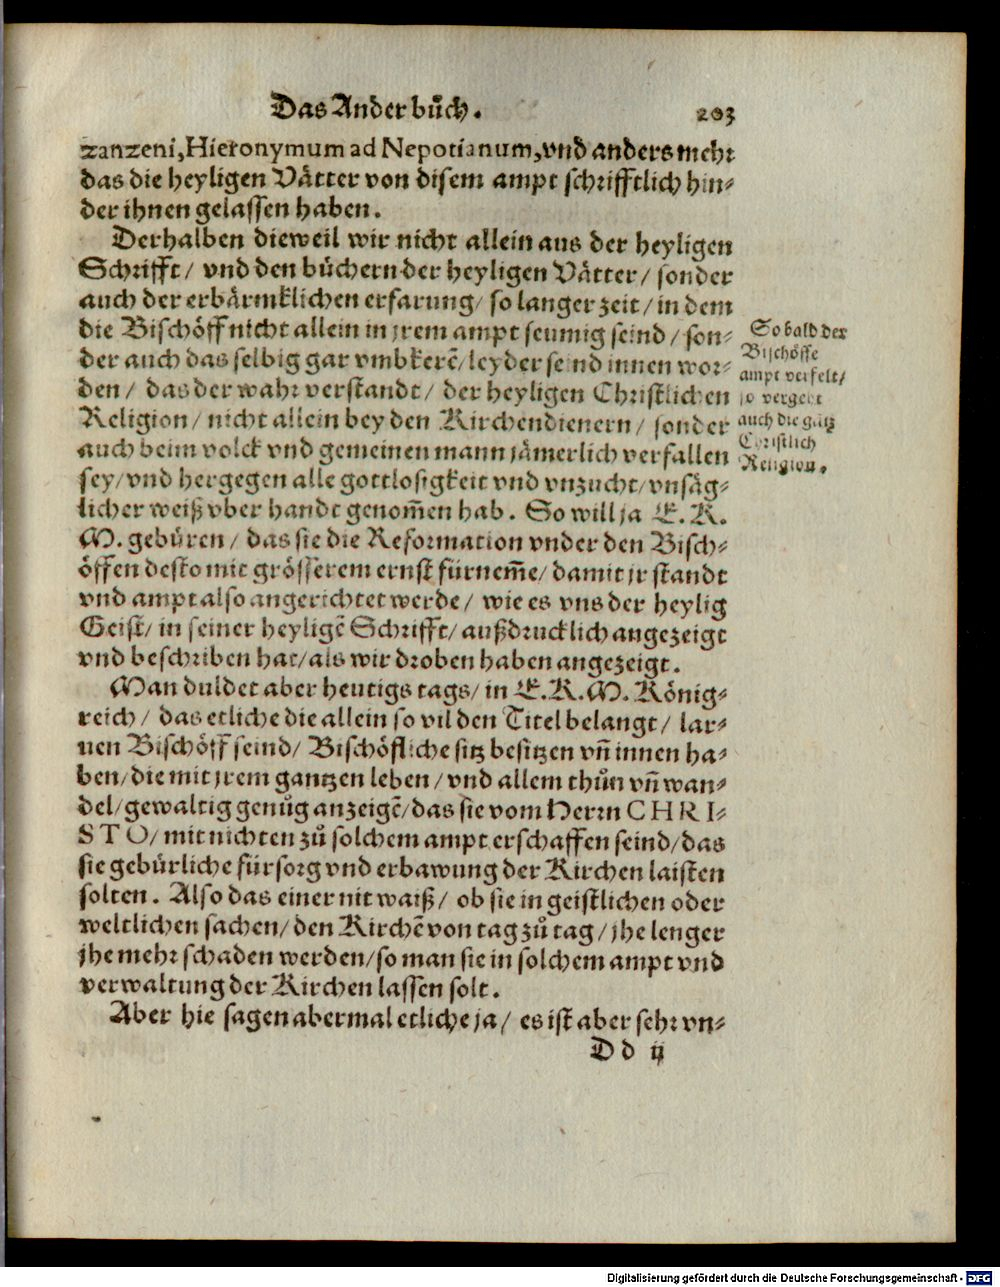 Das Ander bůch. 203
zanzeni, Hieronymum ad Nepotianum, vnd anders mehr
das die heyligen Vätter von disem ampt schrifftlich hin-
der ihnen gelassen haben.
Derhalben dieweil wir nicht allein aus der heyligen
Schrifft/ vnd den bůchern der heyligen Vätter/ sonder
auch der erbärmklichen erfarung/ so langer zeit/ in dem
die Bischöff nicht allein in jrem ampt seumig seind/ son-
der auch das selbig gar vmbkerẽ/ leyder seind innen wor-
den/ das der wahr verstandt/ der heyligen Christlichen
Religion/ nicht allein bey den Kirchendienern/ sonder
auch beim volck vnd gemeinen mann jämerlich verfallen
sey/ vnd hergegen alle gottlosigkeit vnd vnzucht/ vnsäg-
licher weiß vber handt genom̃en hab. So will ja E. K.
M. gebüren/ das sie die Reformation vnder den Bisch-
öffen desto mit grösserem ernst fürnem̃e/ damit jr standt
vnd ampt also angerichtet werde/ wie es vns der heylig
Geist/ in seiner heyligẽ Schrifft/ außdrucklich angezeigt
vnd beschriben hat/ als wir droben haben angezeigt.
Man duldet aber heutigs tags/ in E. K. M. König-
reich/ das etliche die allein so vil den Titel belangt/ lar-
uen Bischöff seind/ Bischöfliche sitz besitzen vñ innen ha-
ben/ die mit jrem gantzen leben/ vnd allem thůn vñ wan-
del/ gewaltig genůg anzeigẽ/ das sie vom Herrn CHRI-
STO/ mit nichten zů solchem ampt erschaffen seind/ das
sie gebürliche fürsorg vnd erbawung der Kirchen laisten
solten. Also das einer nit waiß/ ob sie in geistlichen oder
weltlichen sachen/ den Kirchẽ von tag zů tag/ jhe lenger
jhe mehr schaden werden/ so man sie in solchem ampt vnd
verwaltung der Kirchen lassen solt.
Aber hie sagen abermal etliche ja/ es ist aber sehr vn-
D d ij
So bald der
Bischöffe
ampt verfelt/
so vergeht
auch die gãtz
Christlich
Religion.
Digitalisierung gefördert durch die Deutsche Forschungsgemeinschaft - DFG